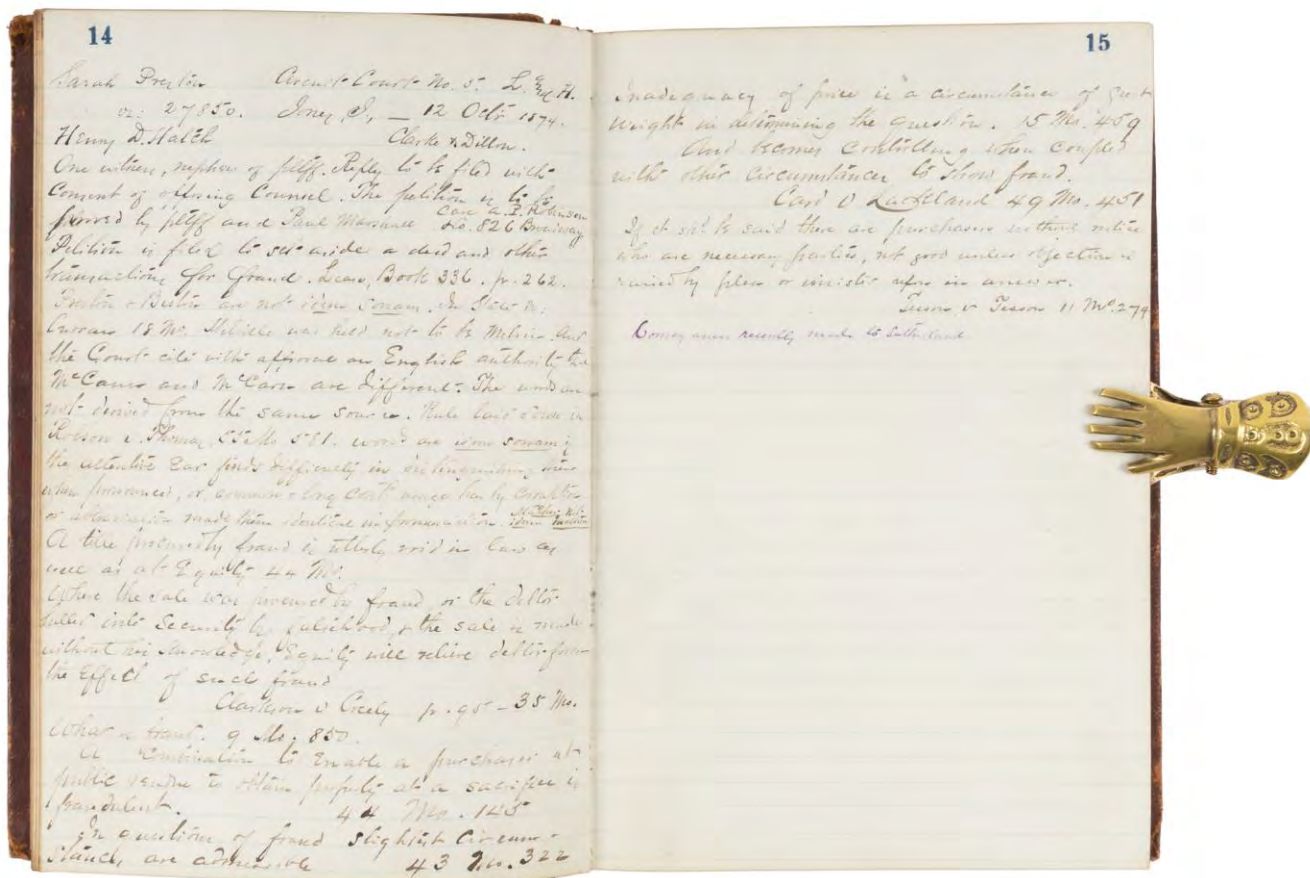 14
Sarah Preston Circuit Court No. 5.
vs. 27850. Jones, J., — 12 Octr 1874.
Henry D. Hatch Clarke & Dillon.
One witness, nephew of pltff. Reply to be filed with
Consent of opposing Counsel. The petition is to be
proved by pltff and Paul Marshall Care A. P. Robinson
No. 826 Broadway
Petition is filed to set aside a deed and other
transactions for fraud. Book 336. p. 262.
Preston & are not idem sonans. In State v.
18 Mo. was held not to be And
the Court cite with approval an English authority that
McCann and McCarn are different. The words are
not derived from the same source. Rule laid down in
Robson v. Thomas 55 Mo 581. words are idem sonans if
the attentive Ear finds difficulty in distinguishing them
when pronounced, or common & long usage has by corruption
or abbreviation made them identical in pronunciation.
A title procured by fraud is utterly void in law as
well as at Equity 44 Mo.
Where the sale was procured by fraud, or the debtor
lulled into Security by falsehood, & the sale is made
without his knowledge, Equity will relieve debtor from
the Effect of such fraud
Clarkson v Creely p. 95 – 35 Mo.
What is fraud. 9 Mo. 850.
A Combination to Enable a purchaser at
public vendue to obtain property at a sacrifice is
fraudulent. 44 Mo. 145
In questions of fraud slightest Circum-
stances are admissible 43 Mo. 322
15
Inadequacy of price is a circumstance of great
Weight in determining the question. 15 Mo. 459
And becomes controlling when coupled
with other circumstances to show fraud.
v Lackland 49 Mo. 451
If it shd. be said there are purchasers without notice
who are necessary parties, not good unless objection is
raised by plea or insisted upon in answer.
v 11 Mo. 274
recently made to Sutherland